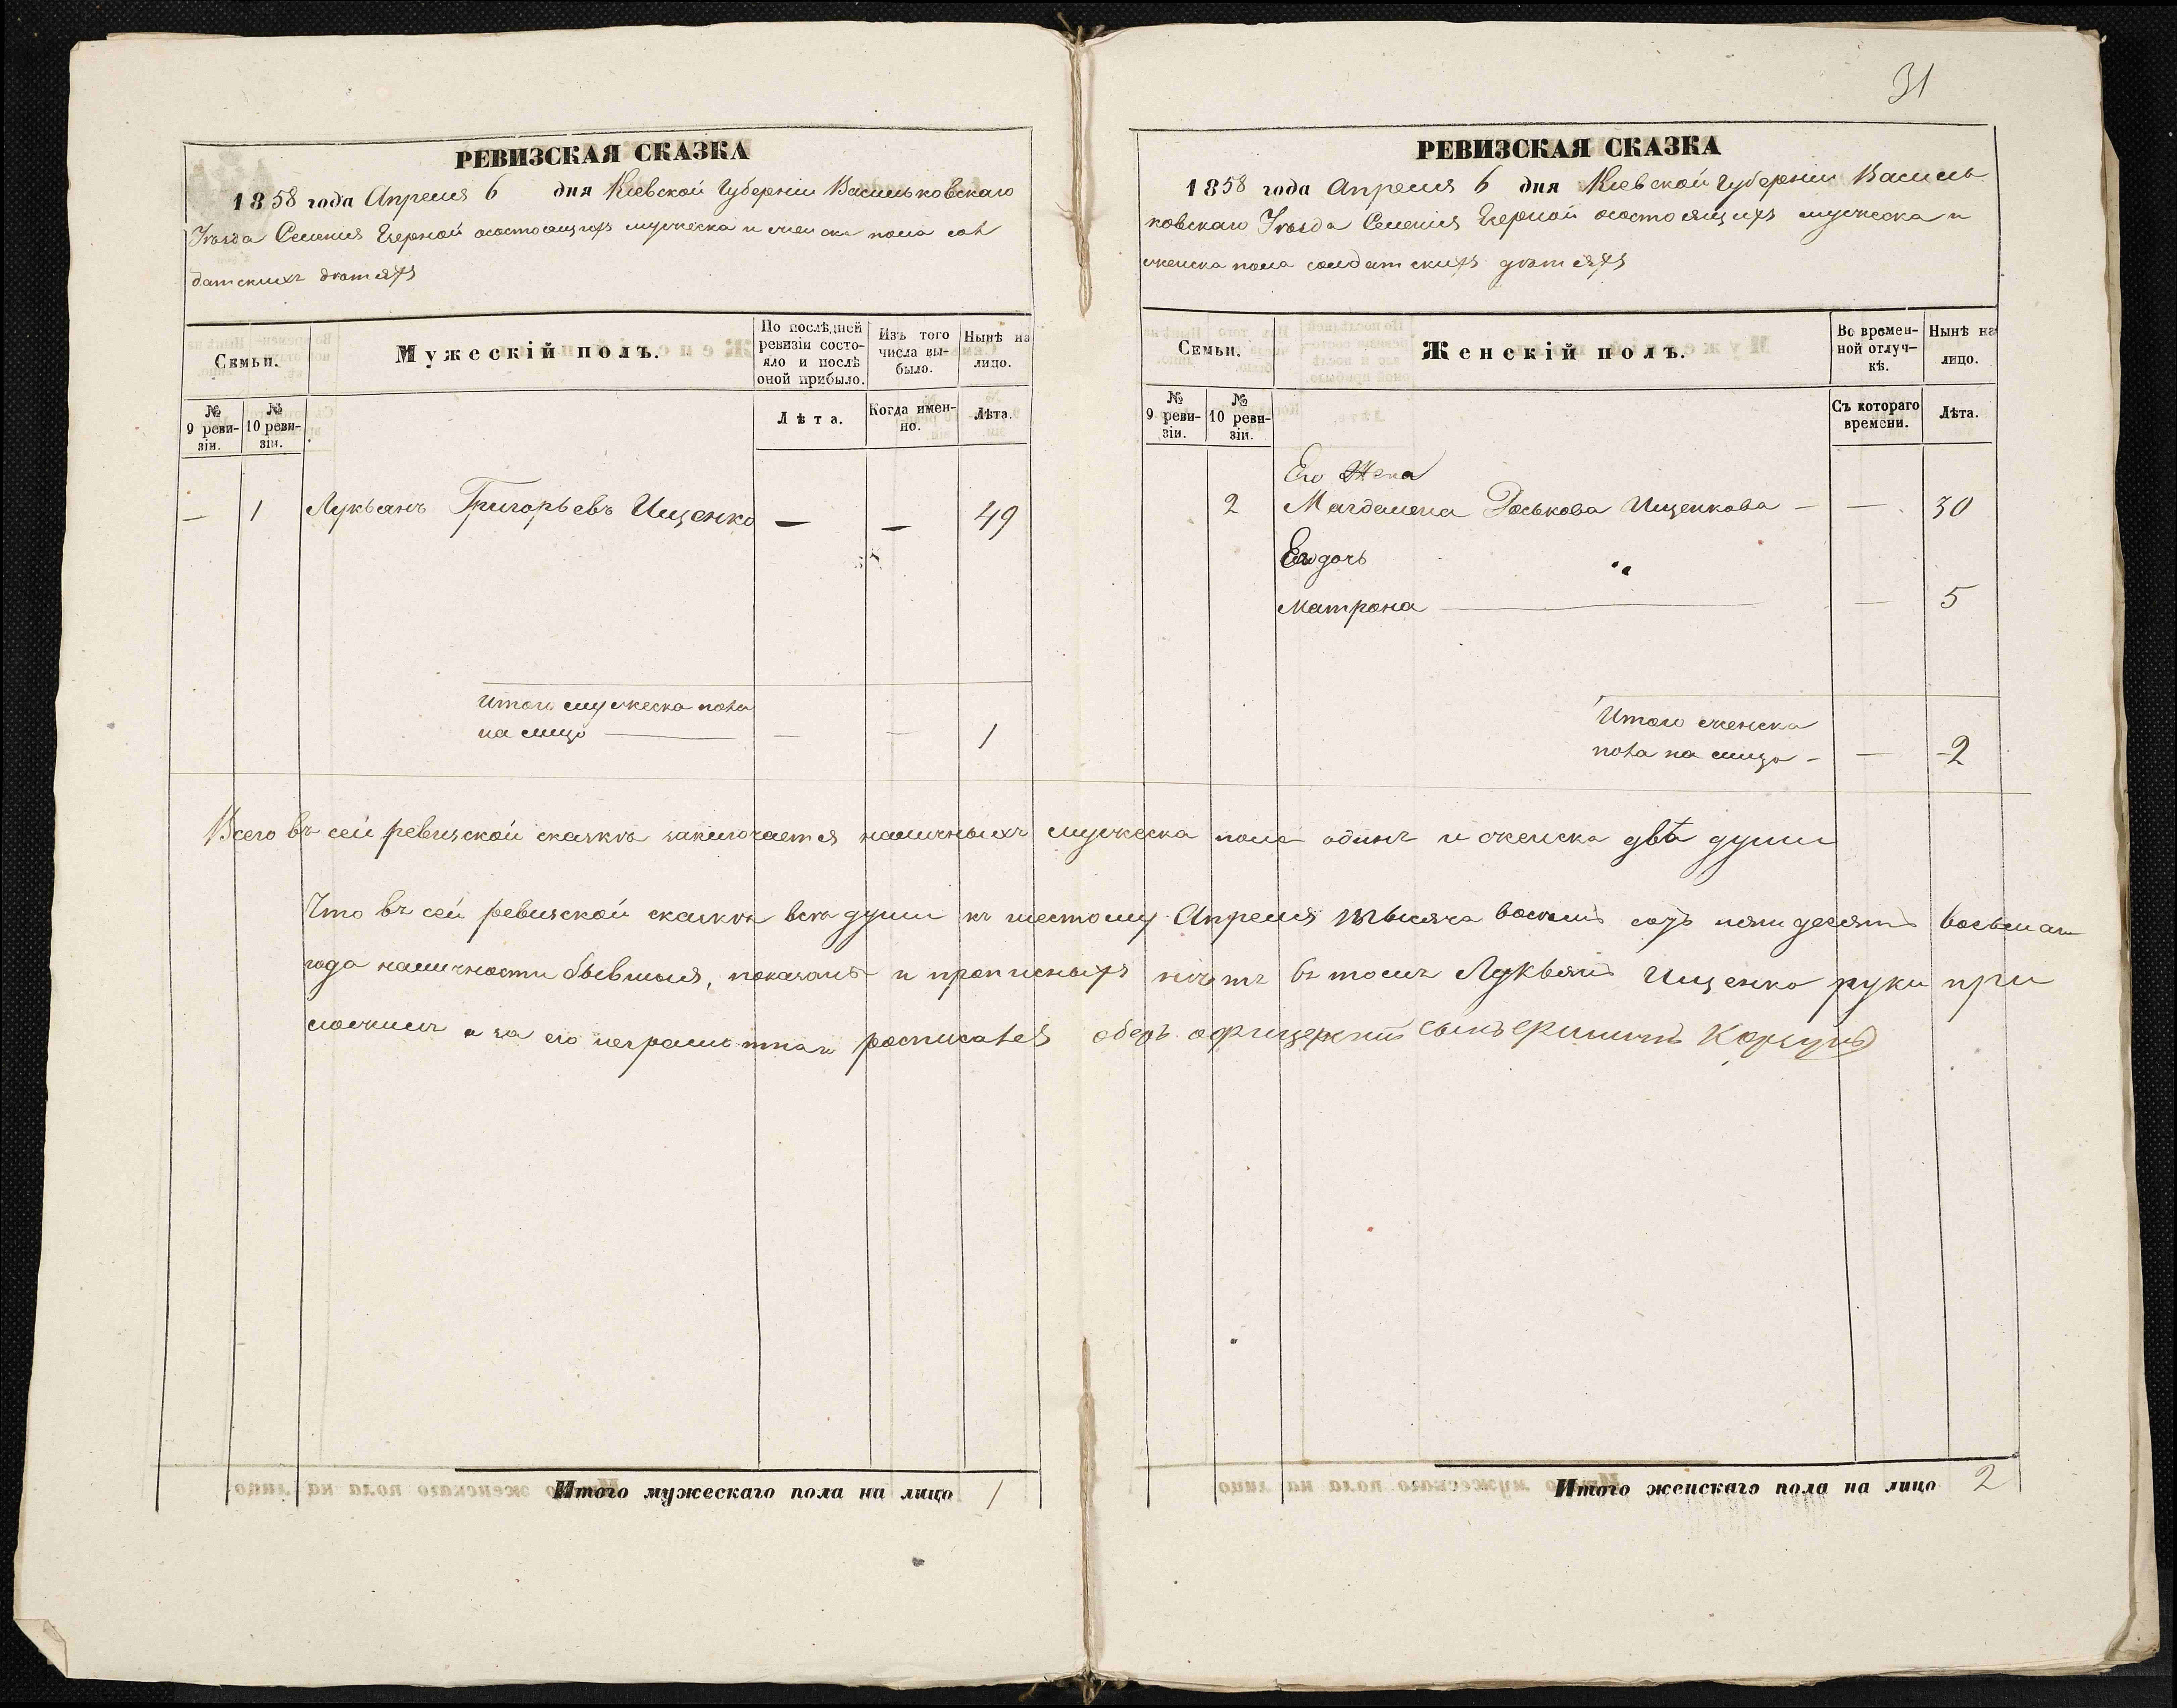 31
РЕВИЗСКАЯ СКАЗКА
1858 года Апреля 6 дня Кіевской Губерніи Васильковскаго
Уѣзда Селенія Черной осостоящихъ мужеска и женска пола сол
датскихъ дѣтяхъ
Семьи.
Мужескій полъ.
По послѣдней ревизіи состояло и послѣ оной прибыло.
Изъ того числа выбыло.
Нынѣ на лицо.
№ 9 ревизіи.
№ 10 ревизіи.
Лѣта.
Когда именно.
Лѣта.
— 1 Лукьянъ Григорьевъ Ищенко — — 49
Итого мужеска пола
на лицо — — — 1
РЕВИЗСКАЯ СКАЗКА
1858 года Апреля 6 дня Кіевской Губерніи Василь
ковскаго Уѣзда Селенія Черной осостоящихъ мужеска и
женска пола солдатскихъ дѣтяхъ
Семьи.
Женскій полъ.
Во временной отлучкѣ.
Нынѣ на лицо.
№ 9 ревизіи.
№ 10 ревизіи.
Съ котораго времени.
Лѣта.
Его Жена
2 Магдалена Ищенкова — — 30
Его дочь "
Матрона — — 5
Итого женска
пола на лицо - — 2
Всего въ сей ревизской сказкѣ заключается наличныхъ мужеска пола одинъ и женска двѣ души
Что въ сей ревизской сказкѣ всѣ души къ шестому Апреля тысяча восемь сотъ пятидесятъ восьмаго
года наличности бывшыя, показаны и прописныхъ нѣтъ въ томъ Лукьянъ Ищенко руки при
ложилъ а за его неграмотнаго росписался оберъ офицерскій сынъ Корсунъ
Итого мужескаго пола на лицо 1
Итого женскаго пола на лицо 2